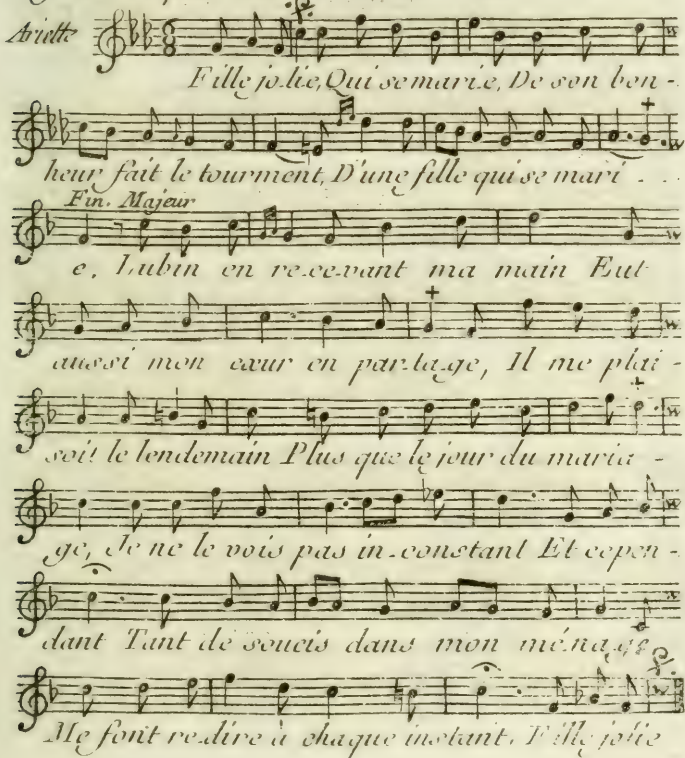 Ariette
Fille jo.lie, Qui se marie, De son bon-
heur fait le tourment, D'une fille qui se mari ...
Fin. Majeur
e. Lubin en re.ce.vant ma main Eut
aussi mon cœur en par.ta.ge, Il me plai-
soit le lendemain Plus que le jour du maria-
ge, Je ne le vois pas in.constant Et cepen-
dant Tant de soucis dans mon ménage
Me font re.dire à chaque instant. Fille jolie